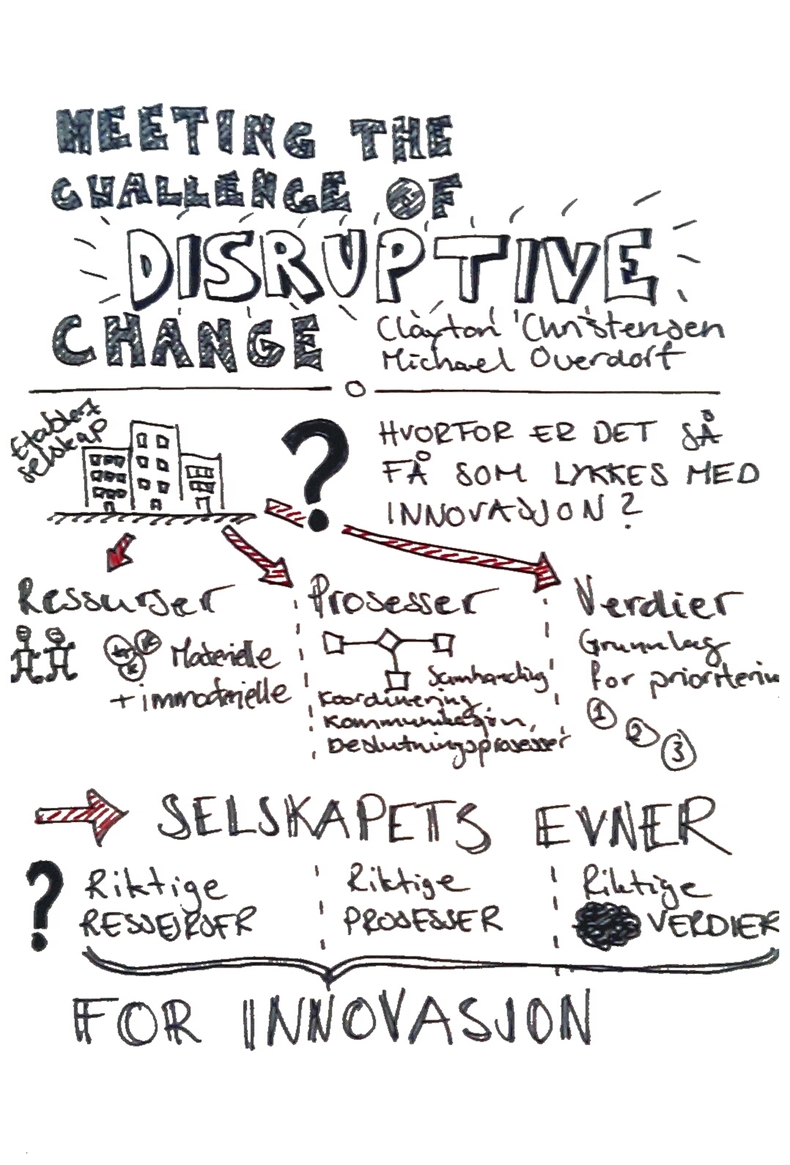 MEETING THE
CHALLENGE OF
DISRUPTIVE
CHANGE
Clayton Christensen
Michael Overdorf
Etablert
selskap
?
HVORFOR ER DET SÅ
FÅ SOM LYKKES MED
INNOVASJON?
Ressurser
Materielle
+ immaterielle
Prosesser
Samhandling
Koordinering,
Kommunikasjon,
Beslutningsprosesser
Verdier
Grunnlag
for prioriterin
1
2
3
SELSKAPETS EVNER
?
Riktige
RESSURSER
Riktige
PROSESSER
Riktige
VERDIER
FOR INNOVASJON